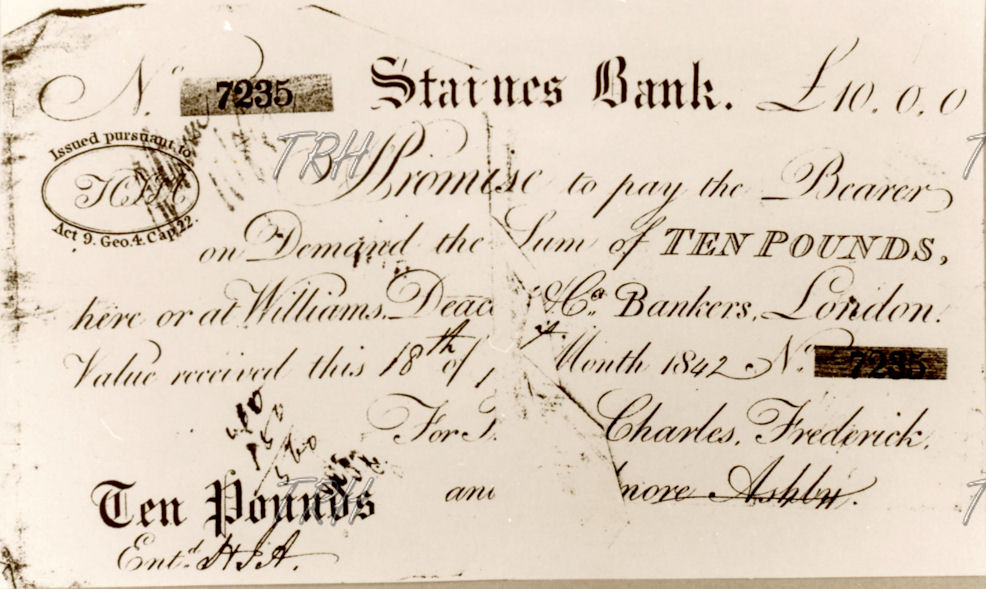 No. 7235 Staines Bank. £10.0.0
Issued pursuant to
Act 9. Geo. 4. Cap. 22.
TRH
I Promise to pay the Bearer
on Demand the Sum of TEN POUNDS,
here or at Williams, Deac & Co. Bankers, London.
Value received this 18th of Month 1842 No. 7235
For Charles, Frederick,
and more Ashby.
400
150
560
Ten Pounds
TRH
Entd. H I A.